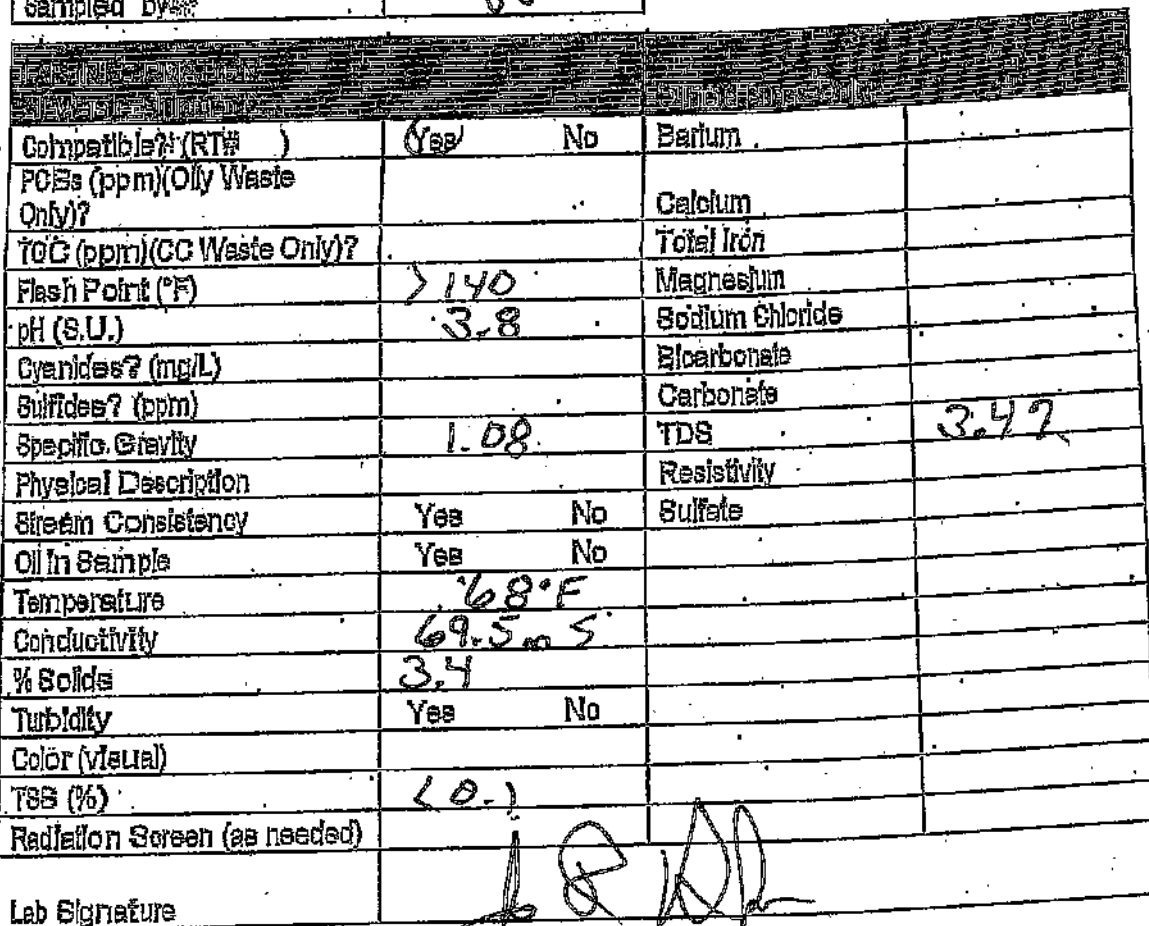 Sampled by
Compatible? (RT# ) Yes No Barium
PCBs (ppm)(Oily Waste
Only)? Calcium
TOC (ppm)(CC Waste Only)? Total Iron
Flash Point (°F) >140 Magnesium
pH (S.U.) 3.8 Sodium Chloride
Cyanides? (mg/L) Bicarbonate
Sulfides? (ppm) Carbonate
Specific Gravity 1.08 TDS 3.47
Physical Description Resistivity
Stream Consistency Yes No Sulfate
Oil In Sample Yes No
Temperature 68°F
Conductivity 69.5 mS
% Solids 3.4
Turbidity Yes No
Color (visual)
TSS (%) <0.1
Radiation Screen (as needed)
Lab Signature